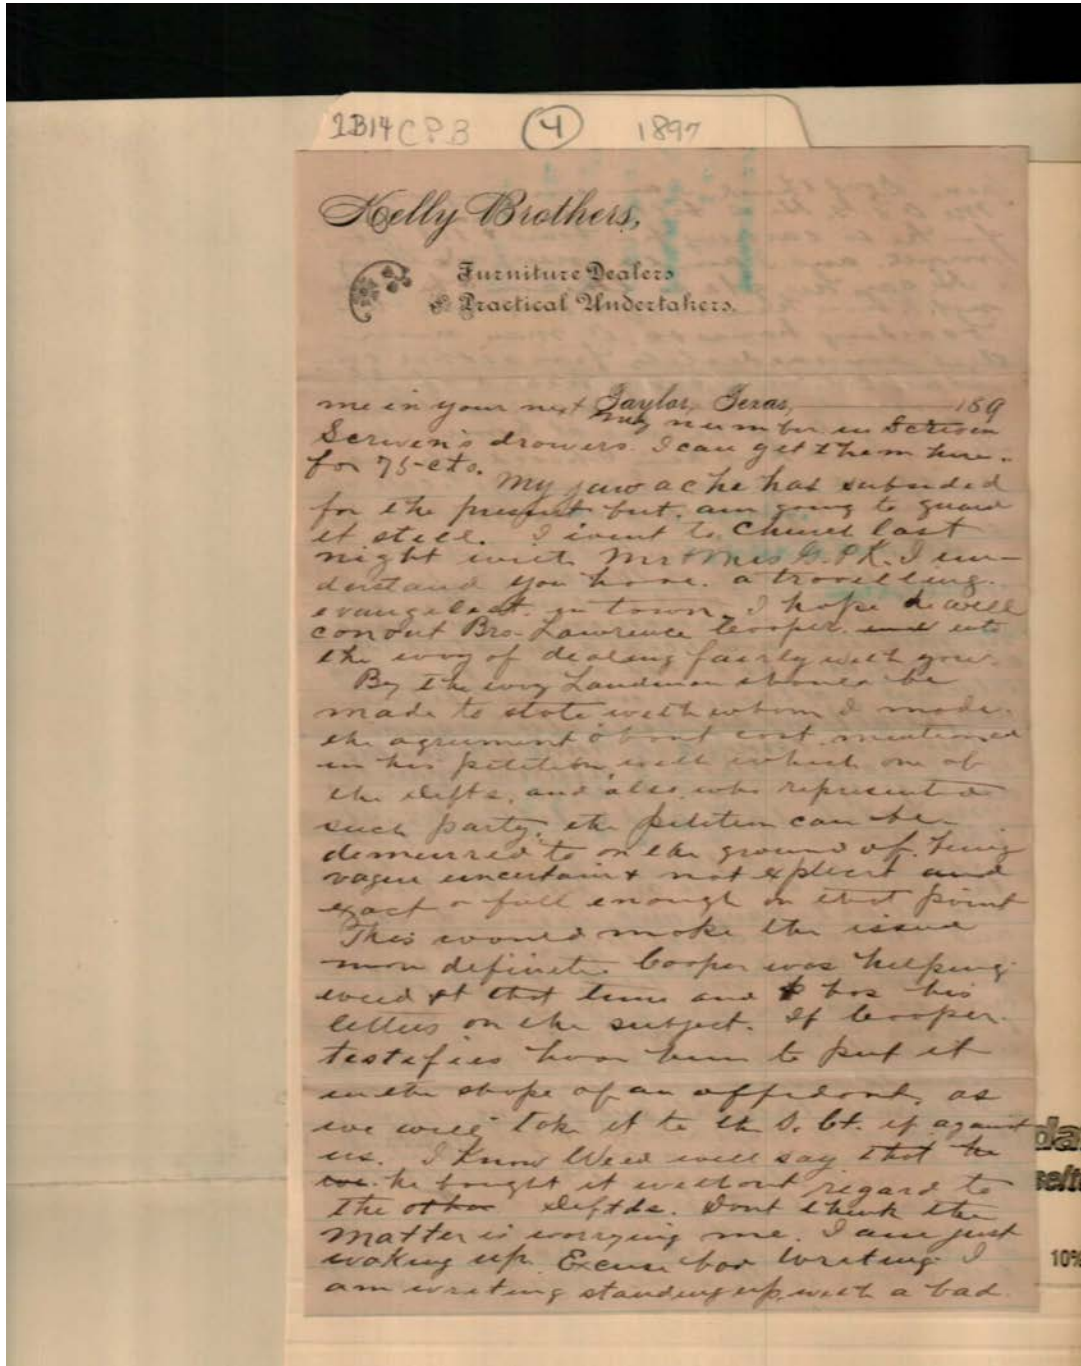 2B14 CPB 4 1897
Kelly Brothers,
Furniture Dealers
& Practical Undertakers.
Taylor, Texas, 189
me in your next my number in Scriven
Scriven's drowers. I can get them here.
for 75-cts.
My jaw ache has subsided
for the present but am going to guard
it still. I went to Church last
night with Mr & Mrs G. P. K. I un-
derstand you have a travelling
evangelest in town. I hope he will
convert Bro. Lawrence Cooper into
the way of dealing fairly with you.
By the way Landman should be
made to state with whom I made
the agrument about cost mentioned
in his petition, with which one of
the defts, and also who represented
such party, the petition can be
demurred to on the ground of being
vague uncertain & not explicit and
exact or full enough on that point
This would make the issue
more definite. Cooper was helping
Weed at that time and has his
letters on the subject. If Cooper
testifies have him to put it
in the shape of an affidavit, as
we will take it to the S. Ct. if against
us. I know Weed will say that he
he bought it without regard to
the other defts. Dont think the
matter is worrying me. I am just
waking up. Excuse bad writing I
am writing standing up with a bad
10%